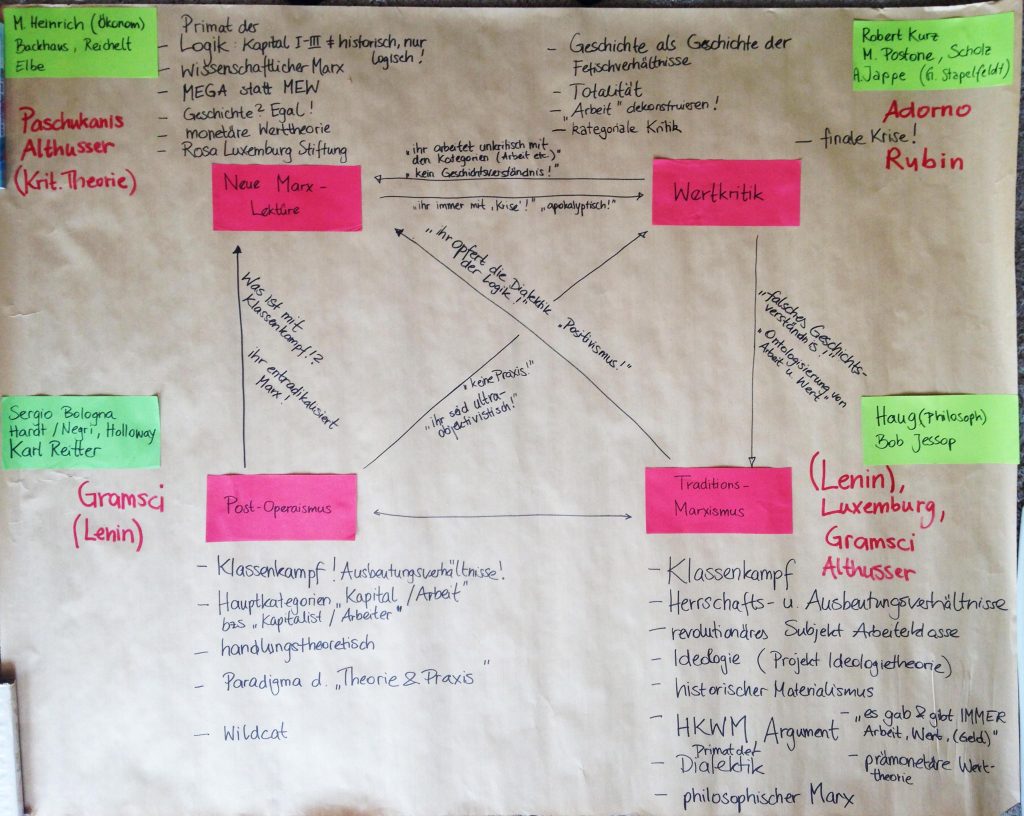 M. Heinrich (Ökonom)
Backhaus, Reichelt
Elbe
Paschukanis
Althusser
(Krit. Theorie)
Primat der
– Logik: Kapital I-III ≠ historisch, nur
logisch!
– Wissenschaftlicher Marx
– MEGA statt MEW
– Geschichte? Egal!
– monetäre Werttheorie
– Rosa Luxemburg Stiftung
Neue Marx-
Lektüre
– Geschichte als Geschichte der
Fetischverhältnisse
– Totalität
– „Arbeit" dekonstruieren!
– kategoriale Kritik
– finale Krise!
Robert Kurz
M. Postone, Scholz
A. Jappe (G. Stapelfeldt)
Adorno
Rubin
Wertkritik
„ihr arbeitet unkritisch mit
den Kategorien (Arbeit etc.)"
„kein Geschichtsverständnis!"
„ihr immer mit ‚Krise'!" „apokalyptisch!"
Was ist mit
Klassenkampf!?
ihr entradikalisiert
Marx!
„ihr opfert die Dialektik
der Logik!"
„Positivismus!"
„keine Praxis!"
„ihr seid ultra-
objektivistisch!"
„falsches Geschichts-
verständnis!"
„Ontologisierung von
Arbeit u. Wert"
Sergio Bologna
Hardt/Negri, Holloway
Karl Reitter
Gramsci
(Lenin)
Post-Operaismus
– Klassenkampf! Ausbeutungsverhältnisse!
– Hauptkategorien „Kapital/Arbeit"
bzs „Kapitalist/Arbeiter"
– handlungstheoretisch
– Paradigma d. „Theorie & Praxis"
– Wildcat
Haug (Philosoph)
Bob Jessop
(Lenin),
Luxemburg,
Gramsci
Althusser
Traditions-
Marxismus
– Klassenkampf
– Herrschafts- u. Ausbeutungsverhältnisse
– revolutionäres Subjekt Arbeiterklasse
– Ideologie (Projekt Ideologietheorie)
– historischer Materialismus
– HKWM, Argument
Primat der
– Dialektik
– philosophischer Marx
– „es gab & gibt IMMER
Arbeit, Wert, (Geld)"
– prämonetäre Wert-
theorie